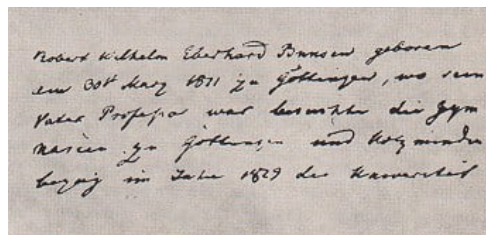 Robert Wilhelm Eberhard Bunsen geboren
am 30st März 1811 zu Göttingen, wo sein
Vater Professor war besuchte die Gym
nasien zu Göttingen und Holzminden
bezog im Jahre 1829 die Universität